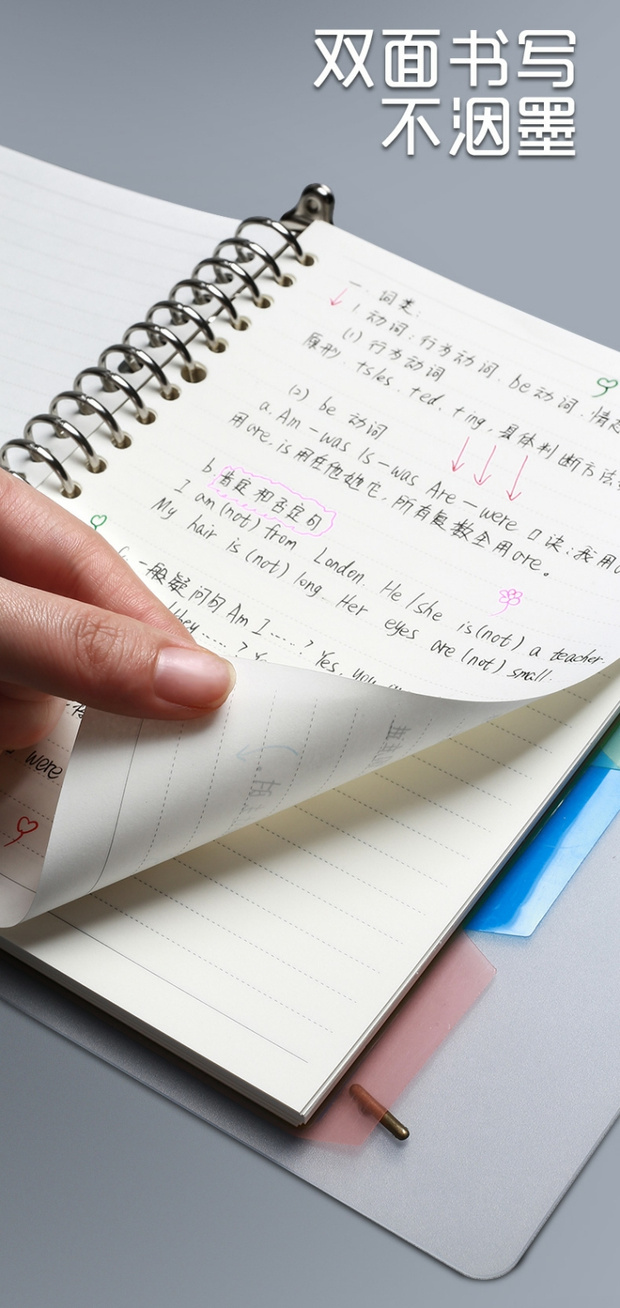 双面书写
不洇墨
一. 词类:
1. 动词: 行为动词、be动词、情态
(1) 行为动词
原形、+s/es、+ed、+ing, 具体判断方法
(2) be 动词
a. Am-was Is-was Are-were 口诀: 我用
用are, is用在他她它, 所有复数全用are。
b. 肯定和否定句
I am (not) from London. He/she is(not) a teacher.
My hair is (not) long. Her eyes are (not) small.
一般疑问句 Am I.....? Yes, you
they.....?
were